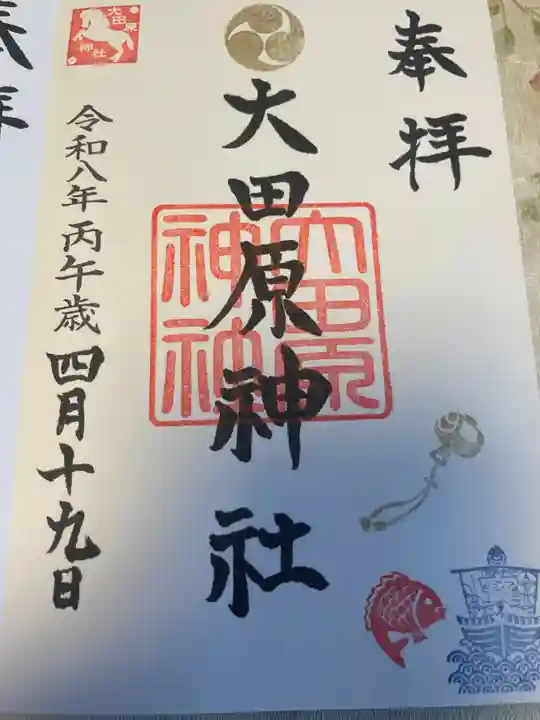 奉拝
大田原神社
大田原
神社
令和八年丙午歳四月十九日
大田原
神社